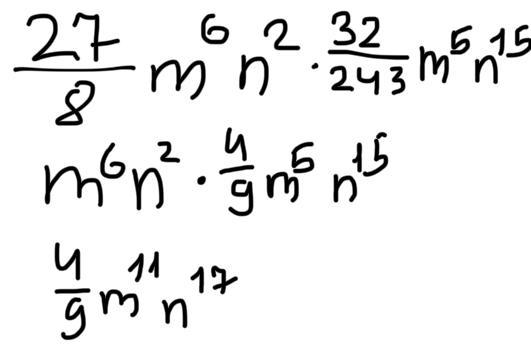 27/8 m⁶ n² · 32/243 m⁵ n¹⁵
m⁶ n² · 4/9 m⁵ n¹⁵
4/9 m¹¹ n¹⁷